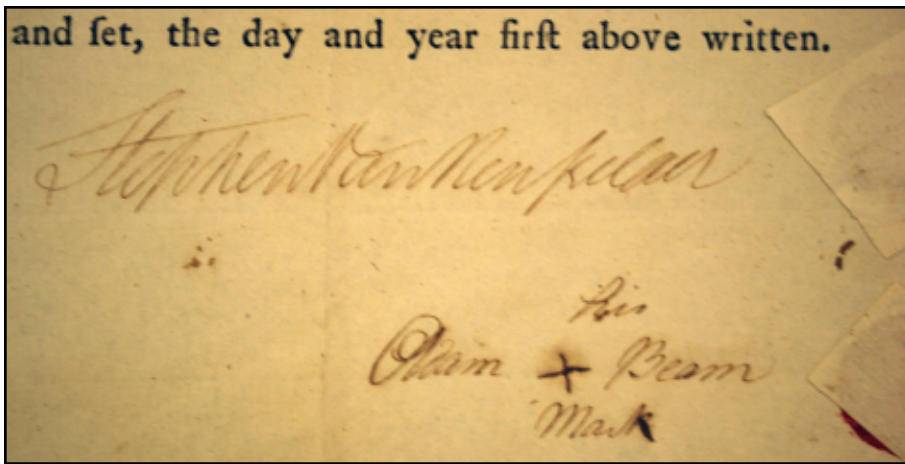 and ſet, the day and year firſt above written.
Stephen Van Renſselaer
his
Adam + Beam
Mark